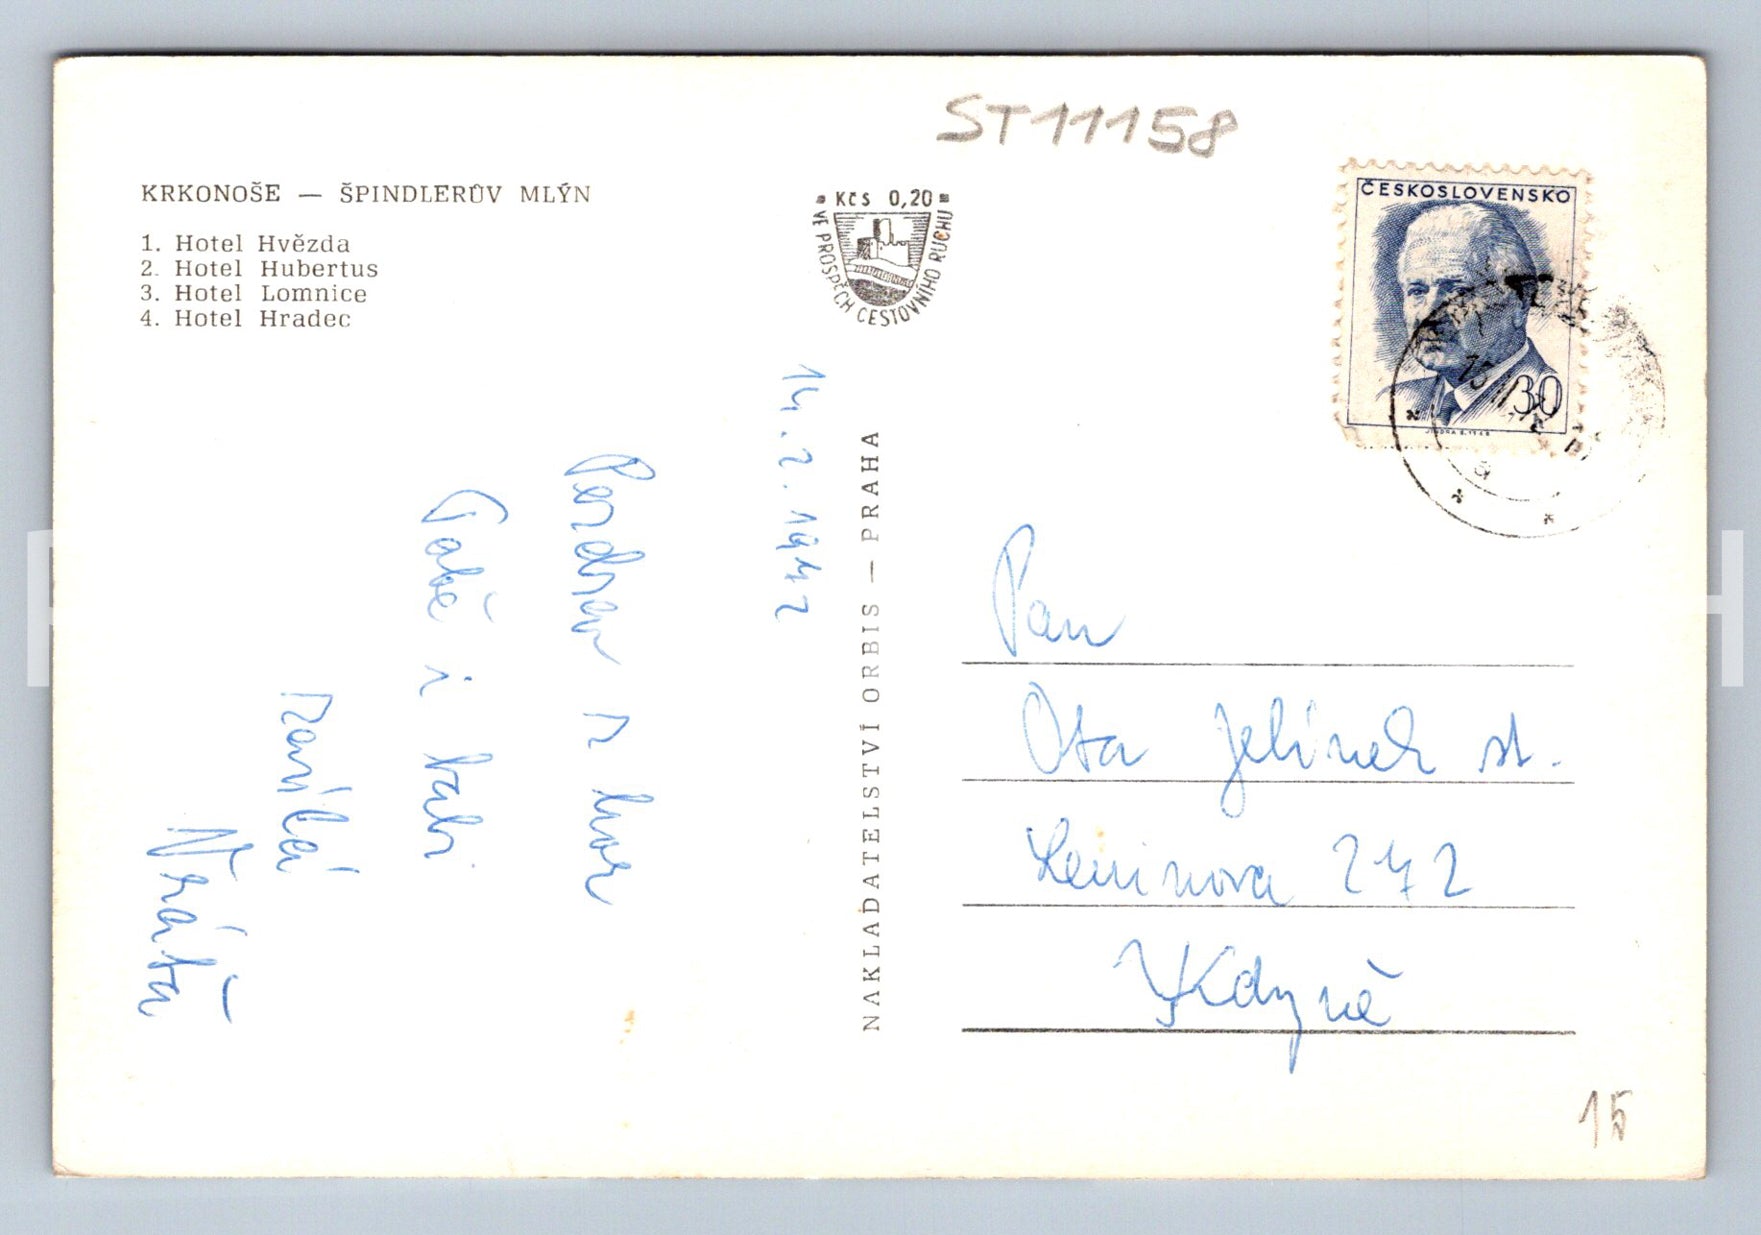 ST11158
KRKONOŠE — ŠPINDLERŮV MLÝN
1. Hotel Hvězda
2. Hotel Hubertus
3. Hotel Lomnice
4. Hotel Hradec
Kčs 0,20
VE PROSPĚCH CESTOVNÍHO RUCHU
ČESKOSLOVENSKO
30
NAKLADATELSTVÍ ORBIS — PRAHA
14.2.1972
Pozdrav z hor
Tobě i
Vráťa
Pan
Ota Jelínek st.
Leninova 272
Kdyně
15